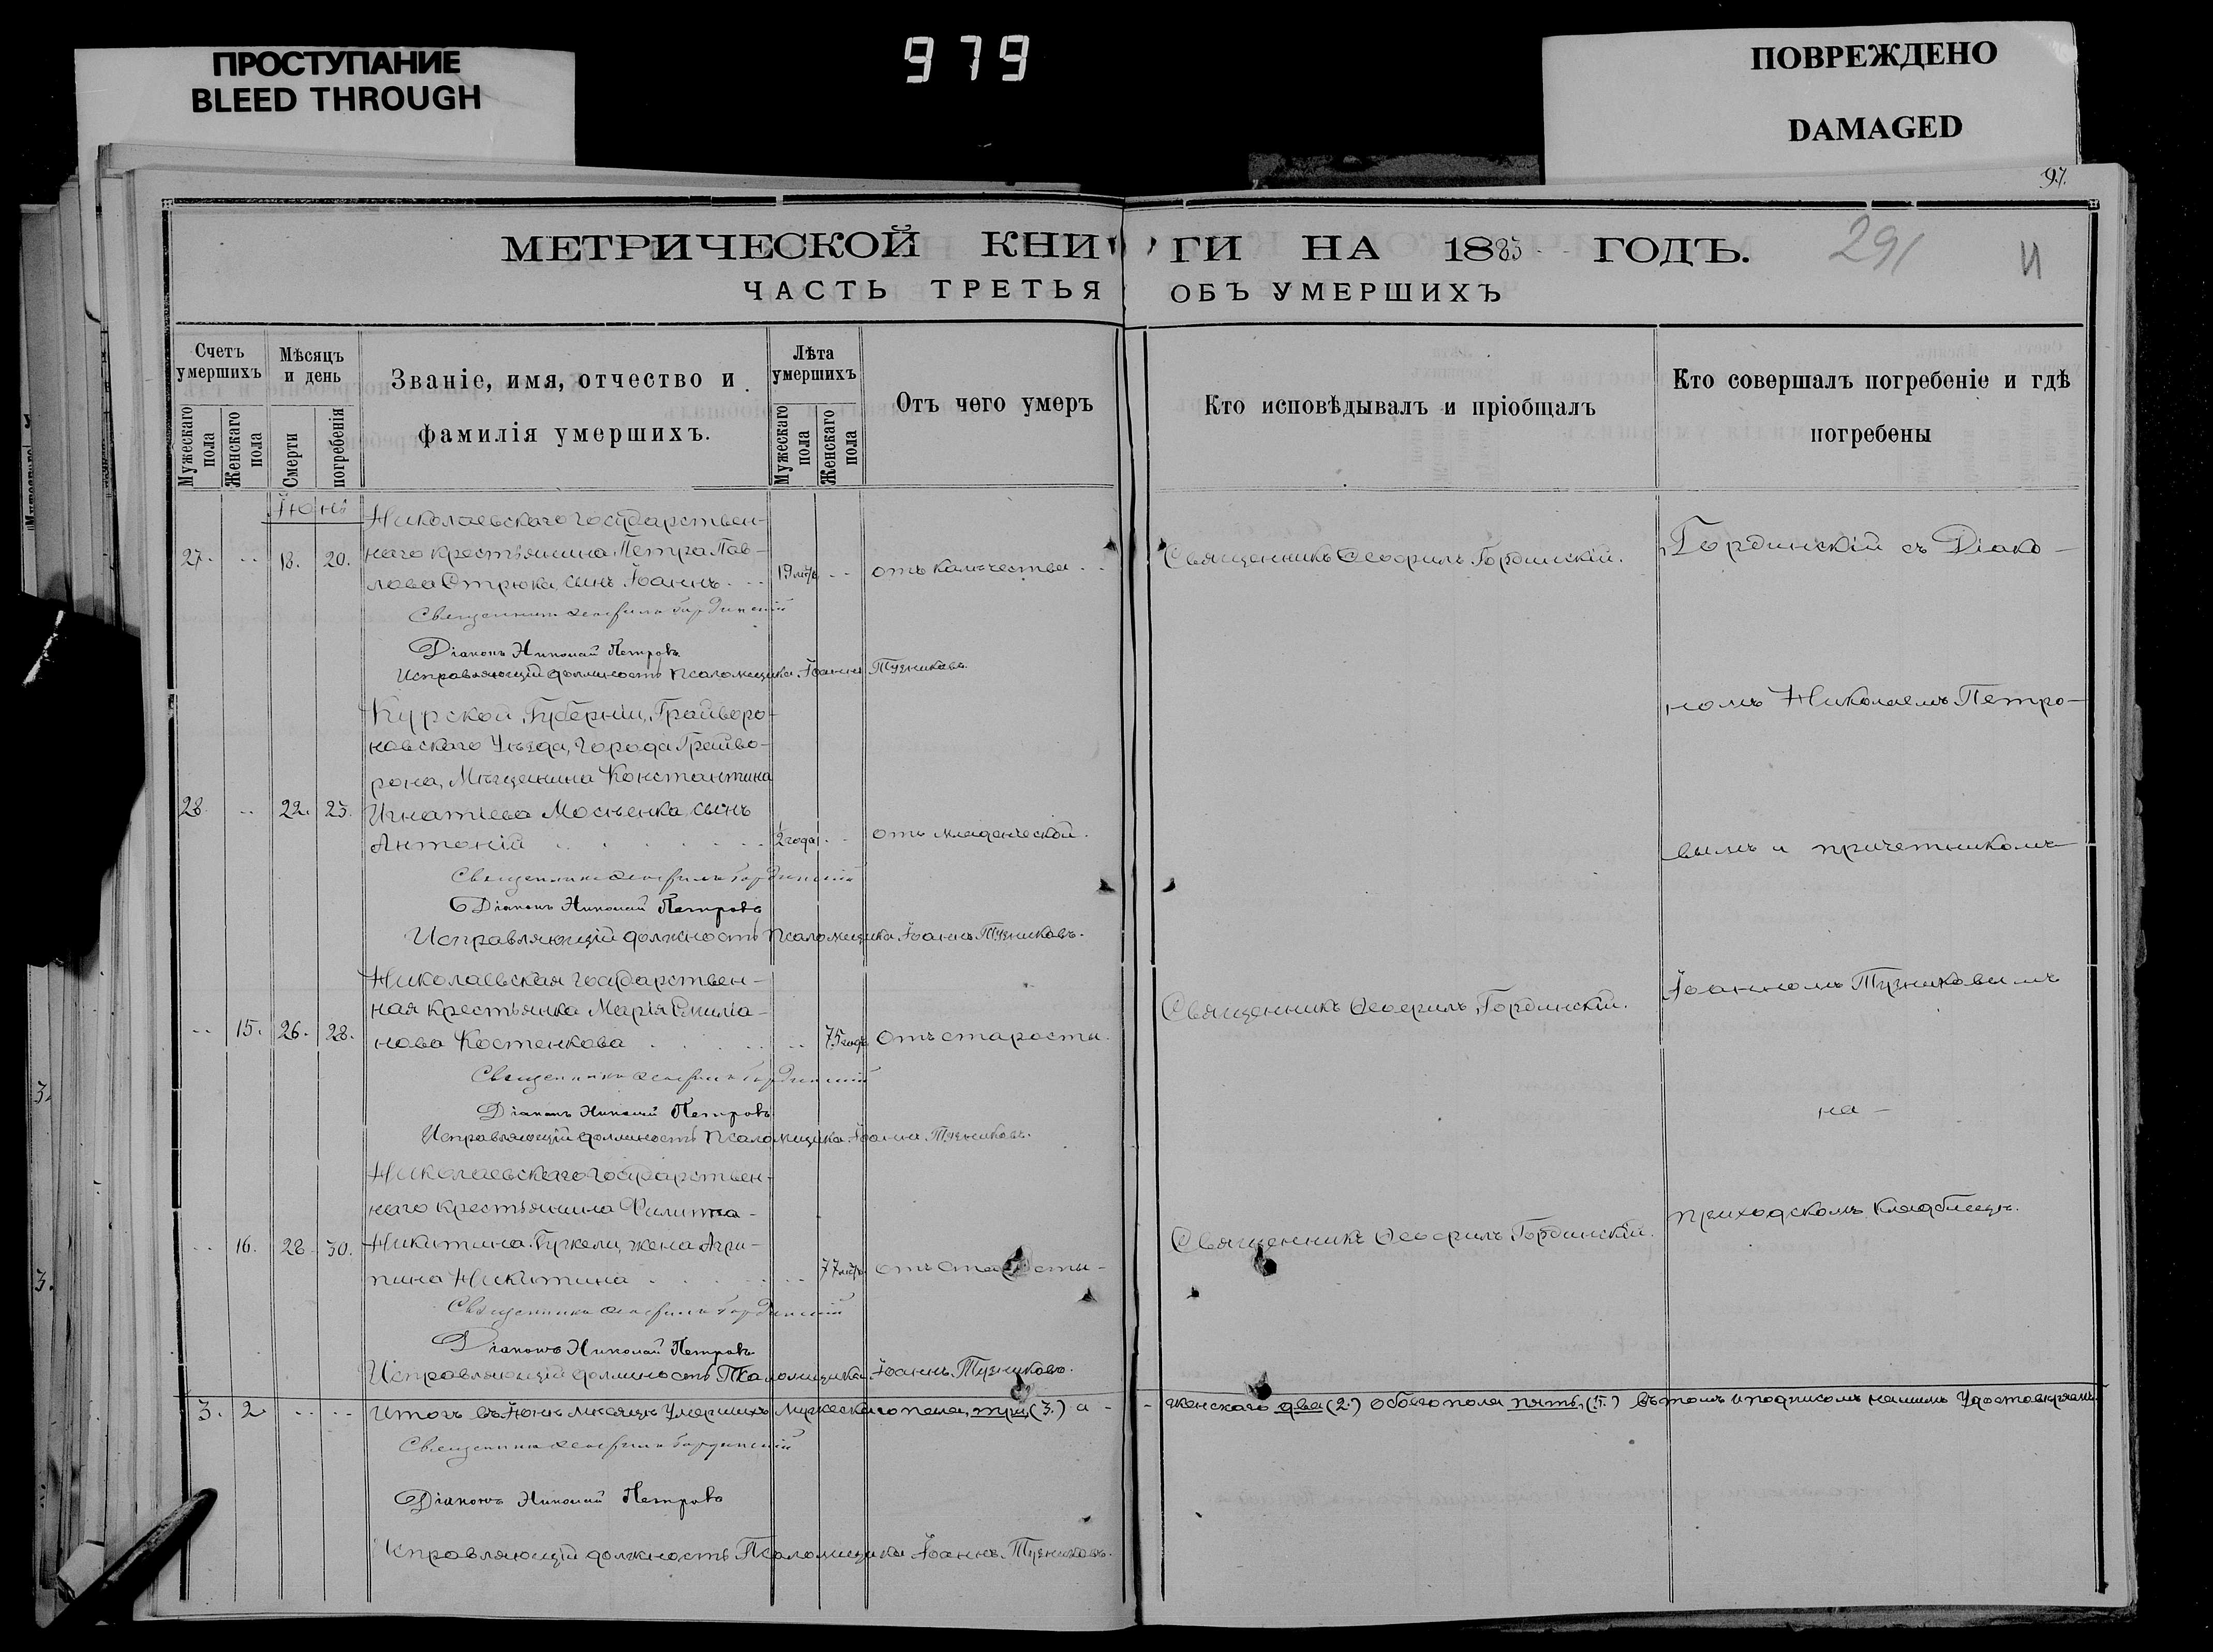 ПРОСТУПАНИЕ
BLEED THROUGH
979
ПОВРЕЖДЕНО
DAMAGED
97.
МЕТРИЧЕСКОЙ КНИГИ НА 1883 ГОДЪ.
291
И
ЧАСТЬ ТРЕТЬЯ ОБЪ УМЕРШИХЪ
Счетъ умершихъ
Мужескаго пола
Женскаго пола
Мѣсяцъ и день
Смерти
погребенія
Званіе, имя, отчество и
фамилія умершихъ.
Лѣта умершихъ
Мужескаго пола
Женскаго пола
Отъ чего умеръ
Кто исповѣдывалъ и пріобщалъ
Кто совершалъ погребеніе и гдѣ
погребены
Іюнь
Николаевскаго государствен-
27. 18. 20. наго крестьянина Петра Пав-
лова Стрюка, сынъ Іоаннъ 19 лѣтъ отъ калѣчества
Священникъ Ѳеофилъ Гординскій.
Гординскій съ Діако-
Священникъ Ѳеофилъ Гординскій
Діаконъ Николай Петровъ
Исправляющій должность Псаломщика Іоаннъ Тузниковъ.
Курской Губерніи, Грайворо-
новскаго Уѣзда, города Грайво-
рона, Мѣщанина Константина
28. 22. 23. Игнатіева Мосъенка сынъ
Антоній 2 года отъ младенческой.
номъ Николаемъ Петро-
вымъ и причетникомъ
Священникъ Ѳеофилъ Гординскій
Діаконъ Николай Петровъ
Исправляющій должность Псаломщика Іоаннъ Тузниковъ.
Николаевская государствен-
ная крестьянка Марія Емиліа-
15. 26. 28. нова Костенкова 75 годъ отъ старости.
Священникъ Ѳеофилъ Гординскій.
Іоанномъ Тузниковымъ
Священникъ Ѳеофилъ Гординскій
Діаконъ Николай Петровъ
Исправляющій должность Псаломщика Іоаннъ Тузниковъ.
на
Николаевскаго государствен-
наго крестьянина Филиппа
16. 28. 30. Никитина Буркели, жена Агри-
пина Никитина 77 лѣтъ отъ старости
Священникъ Ѳеофилъ Гординскій.
приходскомъ кладбищѣ.
Священникъ Ѳеофилъ Гординскій
Діаконъ Николай Петровъ
Исправляющій должность Псаломщика Іоаннъ Тузниковъ.
3. 2. Итогъ въ Іюнѣ мѣсяцѣ умершихъ мужескаго пола, три (3.) а женскаго два (2.) обоего пола пять, (5.) въ томъ и подписомъ нашимъ удостовѣряемъ
Священникъ Ѳеофилъ Гординскій
Діаконъ Николай Петровъ
Исправляющій должность Псаломщика Іоаннъ Тузниковъ.
3.
3.